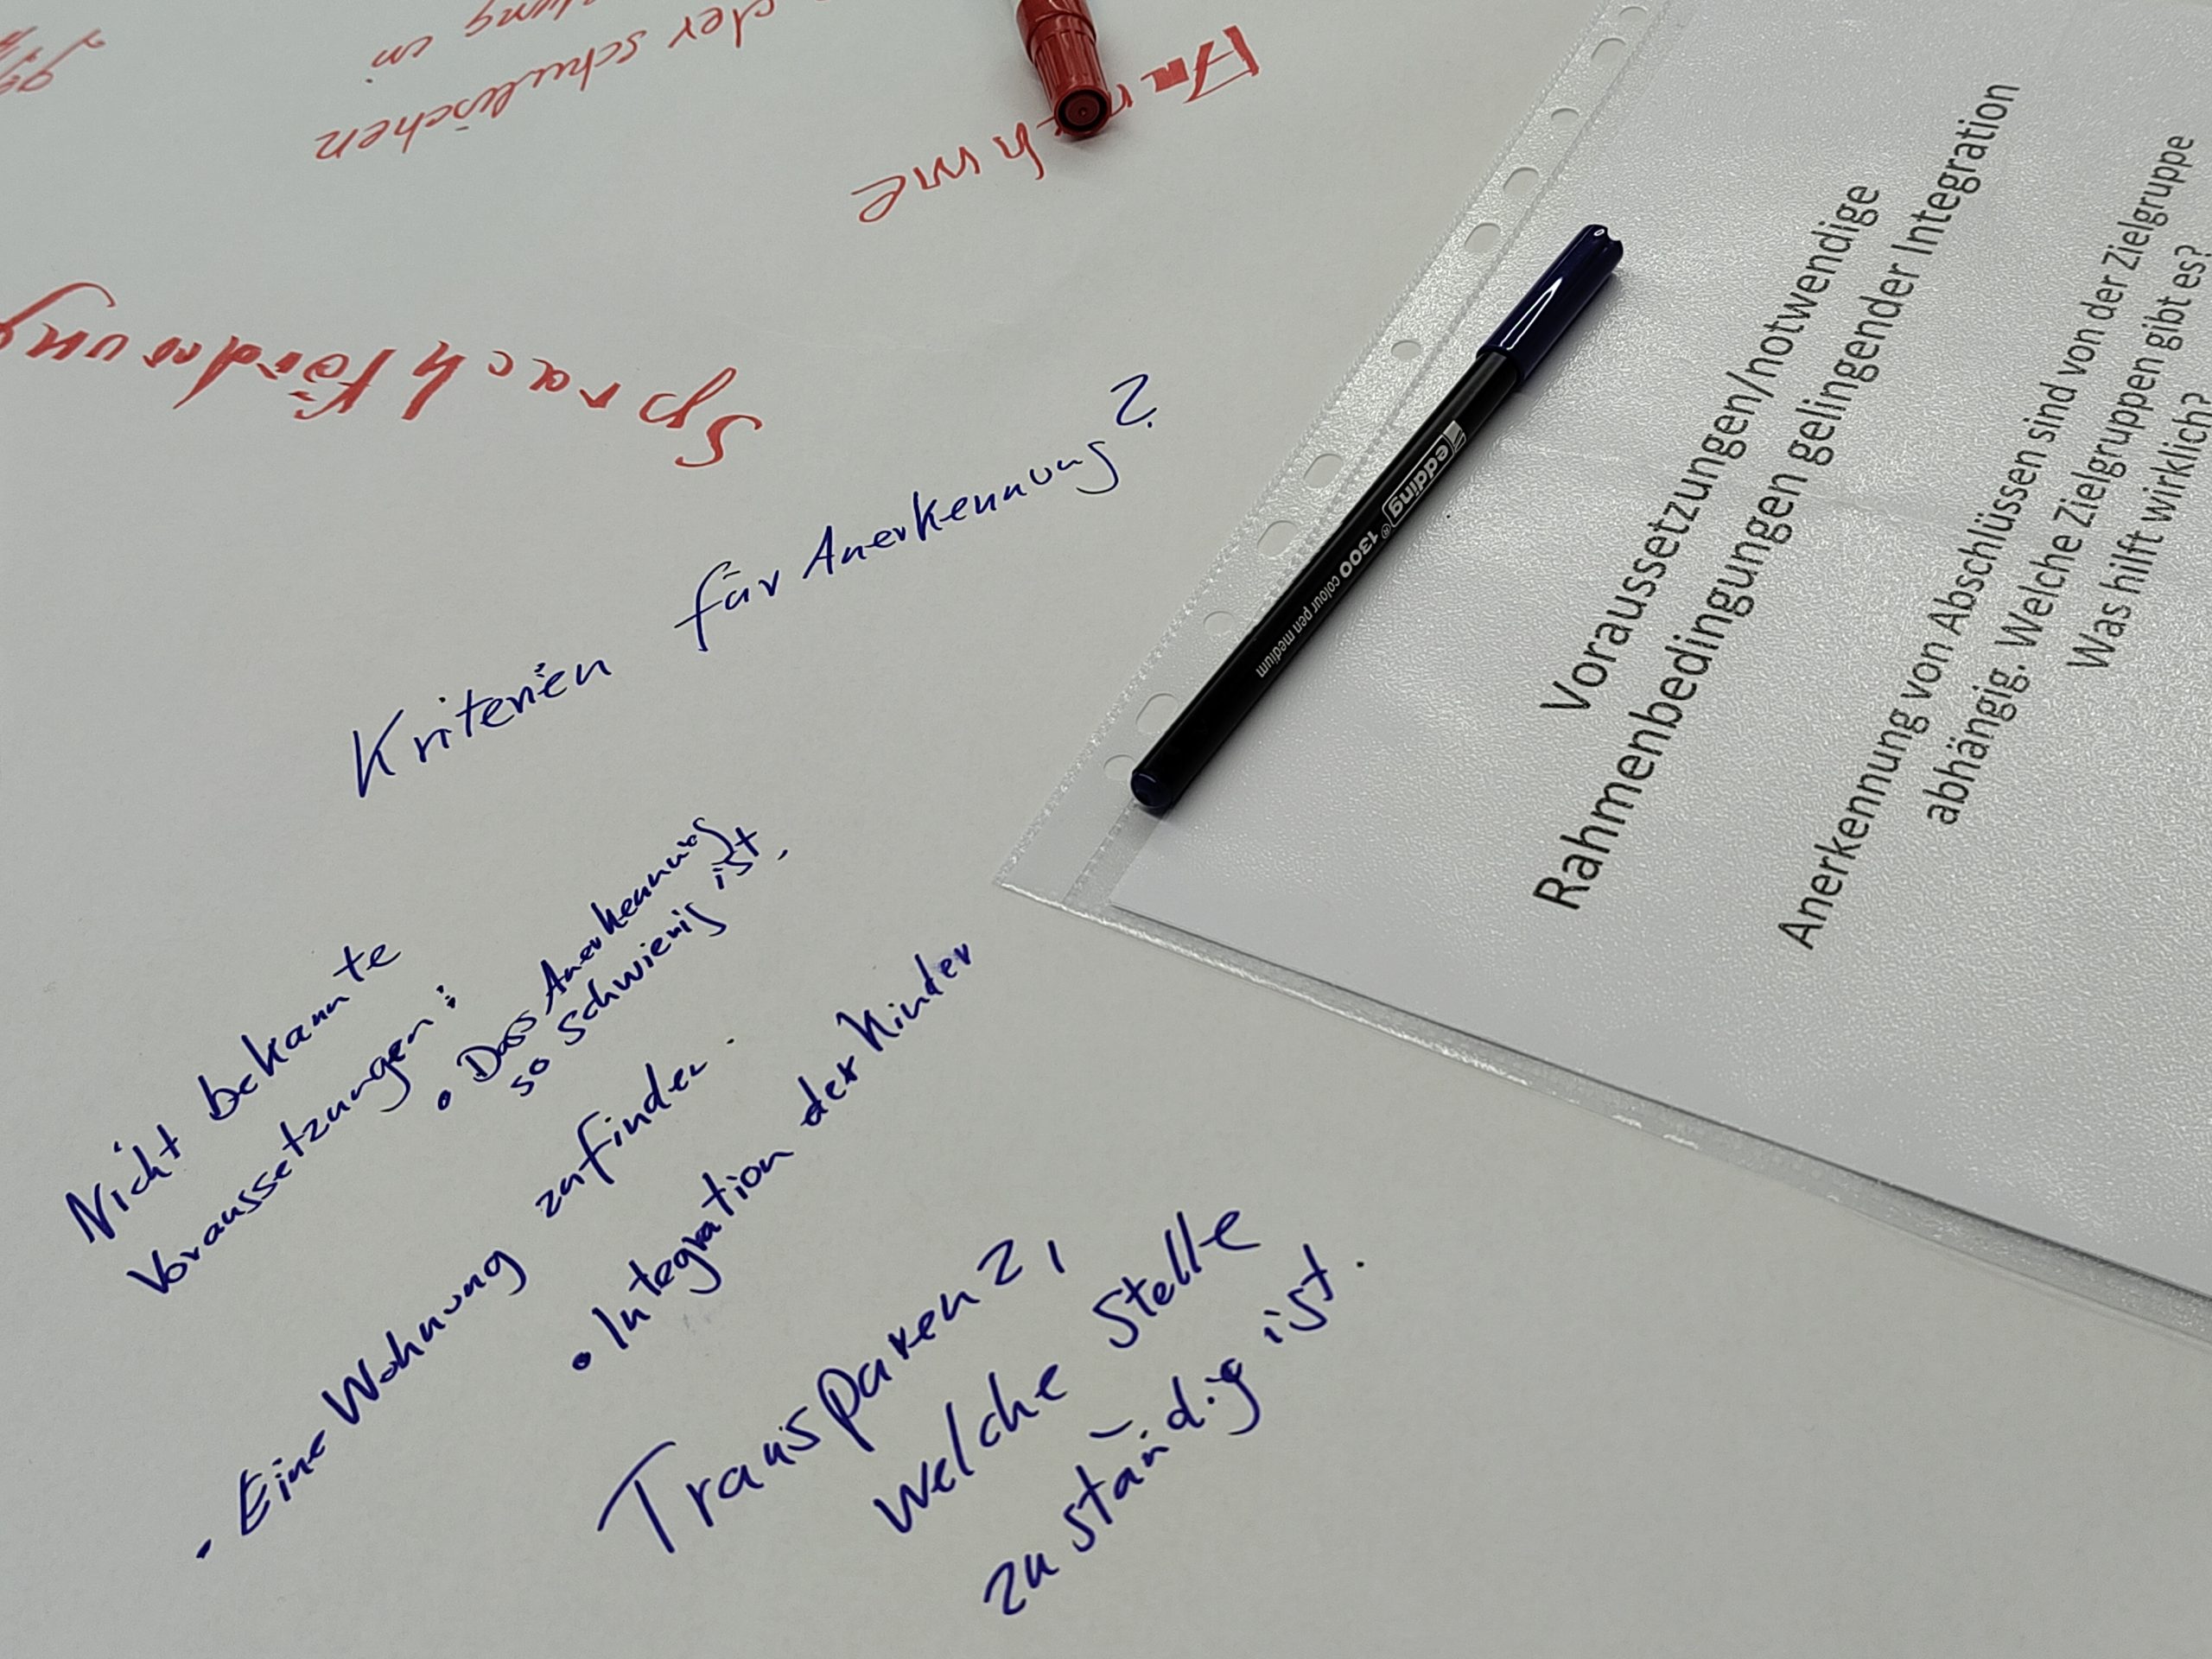 der schulischen
in
Sprachförderung
Kriterien für Anerkennung?
Nicht bekannte
Voraussetzungen:
• Dass Anerkennung
so schwierig ist.
- Eine Wohnung zu finden.
• Integration der Kinder
Transparenz,
welche Stelle
zuständig ist.
edding 1300 colour pen medium
Voraussetzungen/notwendige
Rahmenbedingungen gelingender Integration
Anerkennung von Abschlüssen sind von der Zielgruppe
abhängig. Welche Zielgruppen gibt es?
Was hilft wirklich?